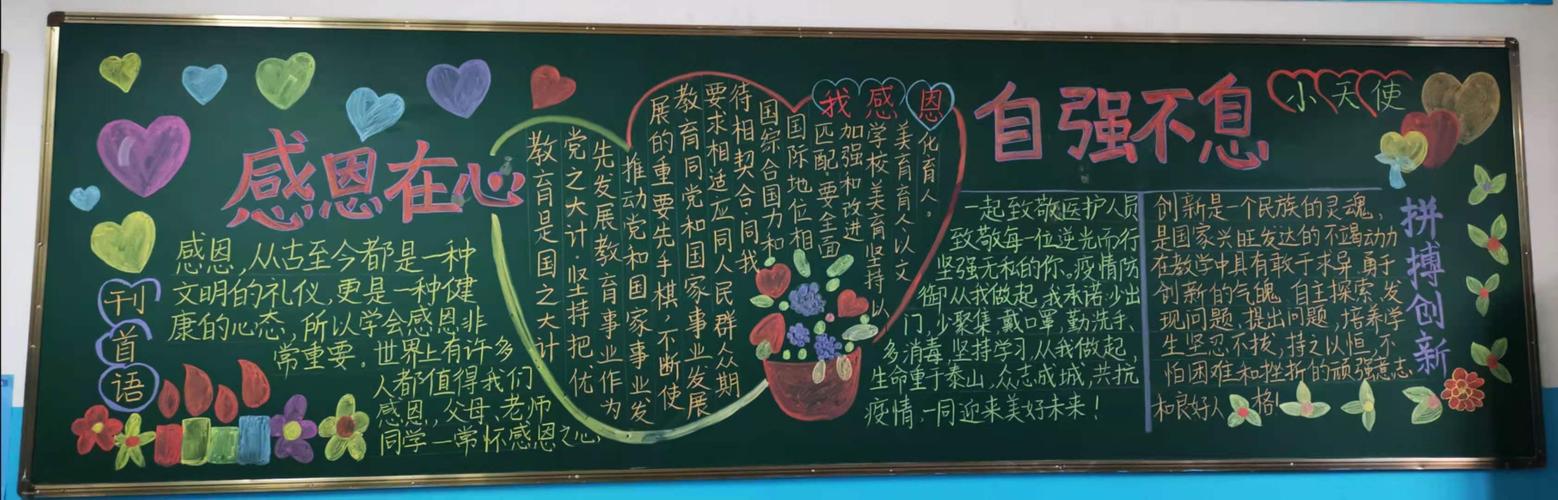 感恩在心
刊首语
感恩,从古至今都是一种
文明的礼仪,更是一种健
康的心态,所以学会感恩非
常重要。世界上有许多
人都值得我们
感恩,父母、老师
同学一常怀感恩之心
我感恩
教育是国之大计
党之大计.坚持把优
先发展教育事业作为
推动党和国家事业发
展的重要先手棋,不断使
教育同党和国家事业发展
要求相适应同人民群众期
待相契合,同我
国综合国力和
国际地位相
匹配.要全面
加强和改进
学校美育坚持以
美育育人、以文
化育人。
自强不息
小天使
一起致敬医护人员
致敬每一位逆光而行
坚强无私的你。疫情防
御从我做起,我承诺:少出
门,少聚集,戴口罩,勤洗手、
多消毒,坚持学习,从我做起,
生命重于泰山,众志成城,共抗
疫情,一同迎来美好未来!
创新是一个民族的灵魂,
是国家兴旺发达的不竭动力
在教学中具有敢于求异,勇于
创新的气魄,自主探索,发
现问题,提出问题,培养学
生坚忍不拔,持之以恒,不
怕困难和挫折的顽强意志
和良好人格!
拼搏创新